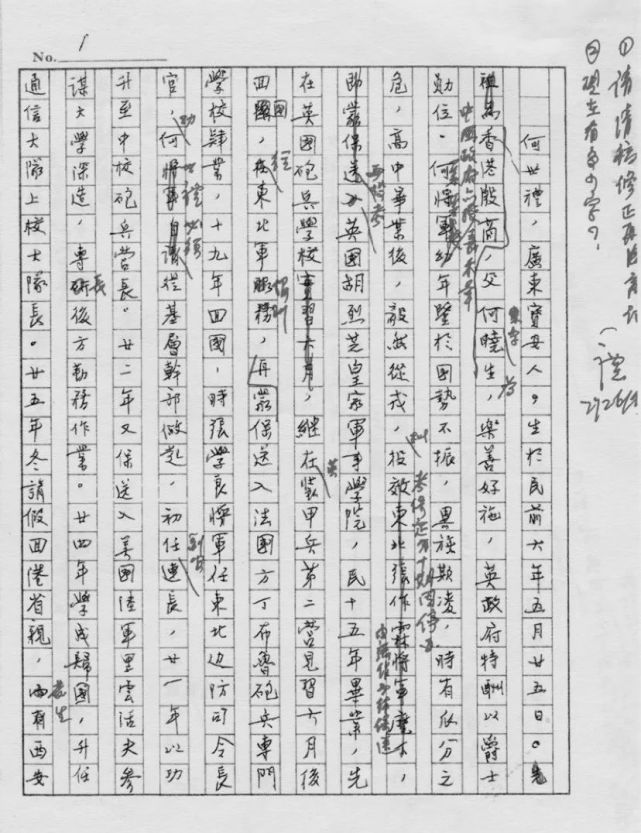 No. 1
何世禮，廣東寶安人。生於民前六年五月廿五日。先
祖為香港殷商，父何曉生，樂善好施，英政府特酬以爵士
勛位。何將軍幼年鑒於國勢不振，異族欺凌，時有瓜分之
危，高中畢業後，毅然從戎，投效東北張作霖將軍麾下，
即蒙保送入英國胡烈芝皇家軍事學院，民十五年畢業，先
在英國砲兵學校實習六月，繼在裝甲兵第二營見習六月後
回國，在東北軍服務，再蒙保送入法國方丁布魯砲兵專門
學校肄業，十九年回國，時張學良將軍任東北边防司令長
官，何將軍自請從基層幹部做起，初任連長，廿一年以功
升至中校砲兵營長。廿二年又保送入美國陸軍里雲活夫參
謀大學深造，專研後方勤務作業。廿四年學成歸國，升任
通信大隊上校大隊長。廿五年冬請假回港省親，內有西安